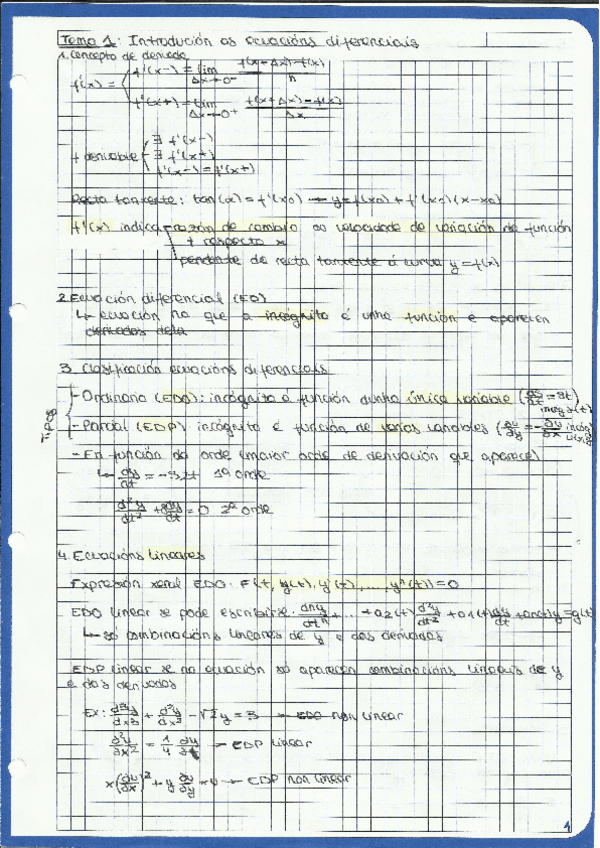 Tema 1: Introdución as ecuacións diferenciais
1. Concepto de derivada
f'(x) = { f'(x-) = lim Δx→0- f(x-Δx)-f(x) / h
f'(x+) = lim Δx→0+ f(x+Δx)-f(x) / Δx
f derivable { ∃ f'(x-)
∃ f'(x+)
f'(x-) = f'(x+)
Recta tanxente: tan(α) = f'(x0) → y = f(x0) + f'(x0)(x-x0)
f'(x) indica razón de cambio ou velocidade de variación de función
f respecto x
pendente da recta tanxente á curva y = f(x)
2. Ecuación diferencial (ED)
↳ ecuación na que a incógnita é unha función e aparecen
derivadas dela
3. Clasificación ecuacións diferenciais
Tipos
- Ordinaria (EDO): incógnita é función dunha única variable
- Parcial (EDP): incógnita é función de varias variables
- En función da orde (maior orde de derivación que aparece)
↳ dy/dt = -32t 1º orde
d²y/dt² + 8dy/dt = 0 2º orde
4. Ecuacións lineares
Expresión xeral EDO: F(t, y(t), y'(t), ..., yⁿ(t)) = 0
EDO linear se pode escribirse: dny/dtⁿ + ... + a2(t) d²y/dt² + a1(t) dy/dt + a0(t)y = g(t)
↳ só combinacións lineares de y e das derivadas
EDP linear se na ecuación só aparecen combinacións lineais de y
e das derivadas
Ex: d³y/dx³ + d²y/dx² - √2y = 3 → EDO non linear
∂²u/∂x² = 1/4 ∂u/∂t → EDP linear
x(∂u/∂x)² + y ∂u/∂y = u → EDP non linear
1